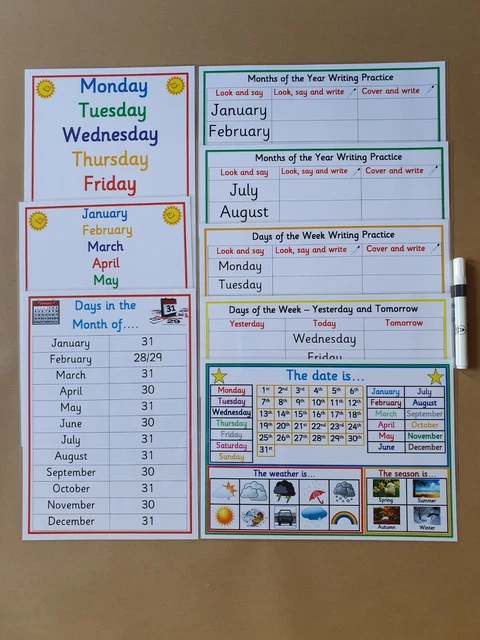 Monday
Tuesday
Wednesday
Thursday
Friday
January
February
March
April
May
Days in the
Month of....
31
29
January 31
February 28/29
March 31
April 30
May 31
June 30
July 31
August 31
September 30
October 31
November 30
December 31
Months of the Year Writing Practice
Look and say Look, say and write Cover and write
January
February
Months of the Year Writing Practice
Look and say Look, say and write Cover and write
July
August
Days of the Week Writing Practice
Look and say Look, say and write Cover and write
Monday
Tuesday
Days of the Week – Yesterday and Tomorrow
Yesterday Today Tomorrow
Wednesday
Friday
The date is...
Monday
Tuesday
Wednesday
Thursday
Friday
Saturday
Sunday
1st 2nd 3rd 4th 5th 6th
7th 8th 9th 10th 11th 12th
13th 14th 15th 16th 17th 18th
19th 20th 21st 22nd 23rd 24th
25th 26th 27th 28th 29th 30th
31st
January July
February August
March September
April October
May November
June December
The weather is...
The season is...
Spring Summer
Autumn Winter